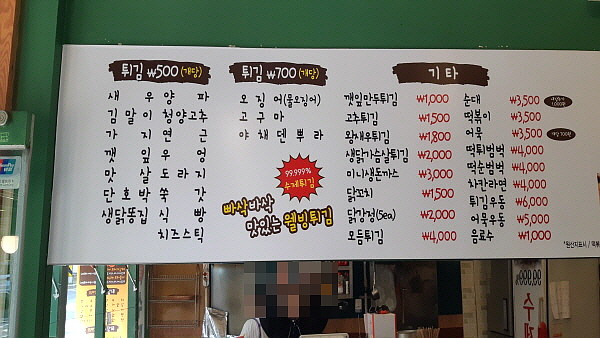 튀김 ₩500 (개당)
새 우 양 파
김 말 이 청양고추
가 지 연 근
깻 잎 우 엉
맛 살 도 라 지
단 호 박 쑥 갓
생닭똥집 식 빵
치즈스틱
튀김 ₩700 (개당)
오 징 어(몸오징어)
고 구 마
야 채 덴 뿌 라
99.999%
수제튀김
빠삭바삭
맛있는 웰빙튀김
기 타
깻잎만두튀김 ₩1,000
고추튀김 ₩1,500
왕새우튀김 ₩1,800
생닭가슴살튀김 ₩2,000
미니생돈까스 ₩3,000
닭꼬치 ₩1,500
닭강정(5ea) ₩2,000
모듬튀김 ₩4,000
순대 ₩3,500
떡볶이 ₩3,500
어묵 ₩3,500 개당 700원
떡튀범벅 ₩4,000
떡순범벅 ₩4,000
차칸라면 ₩4,000
튀김우동 ₩6,000
어묵우동 ₩5,000
음료수 ₩1,000
*원산지표시 /
99.999%
수제